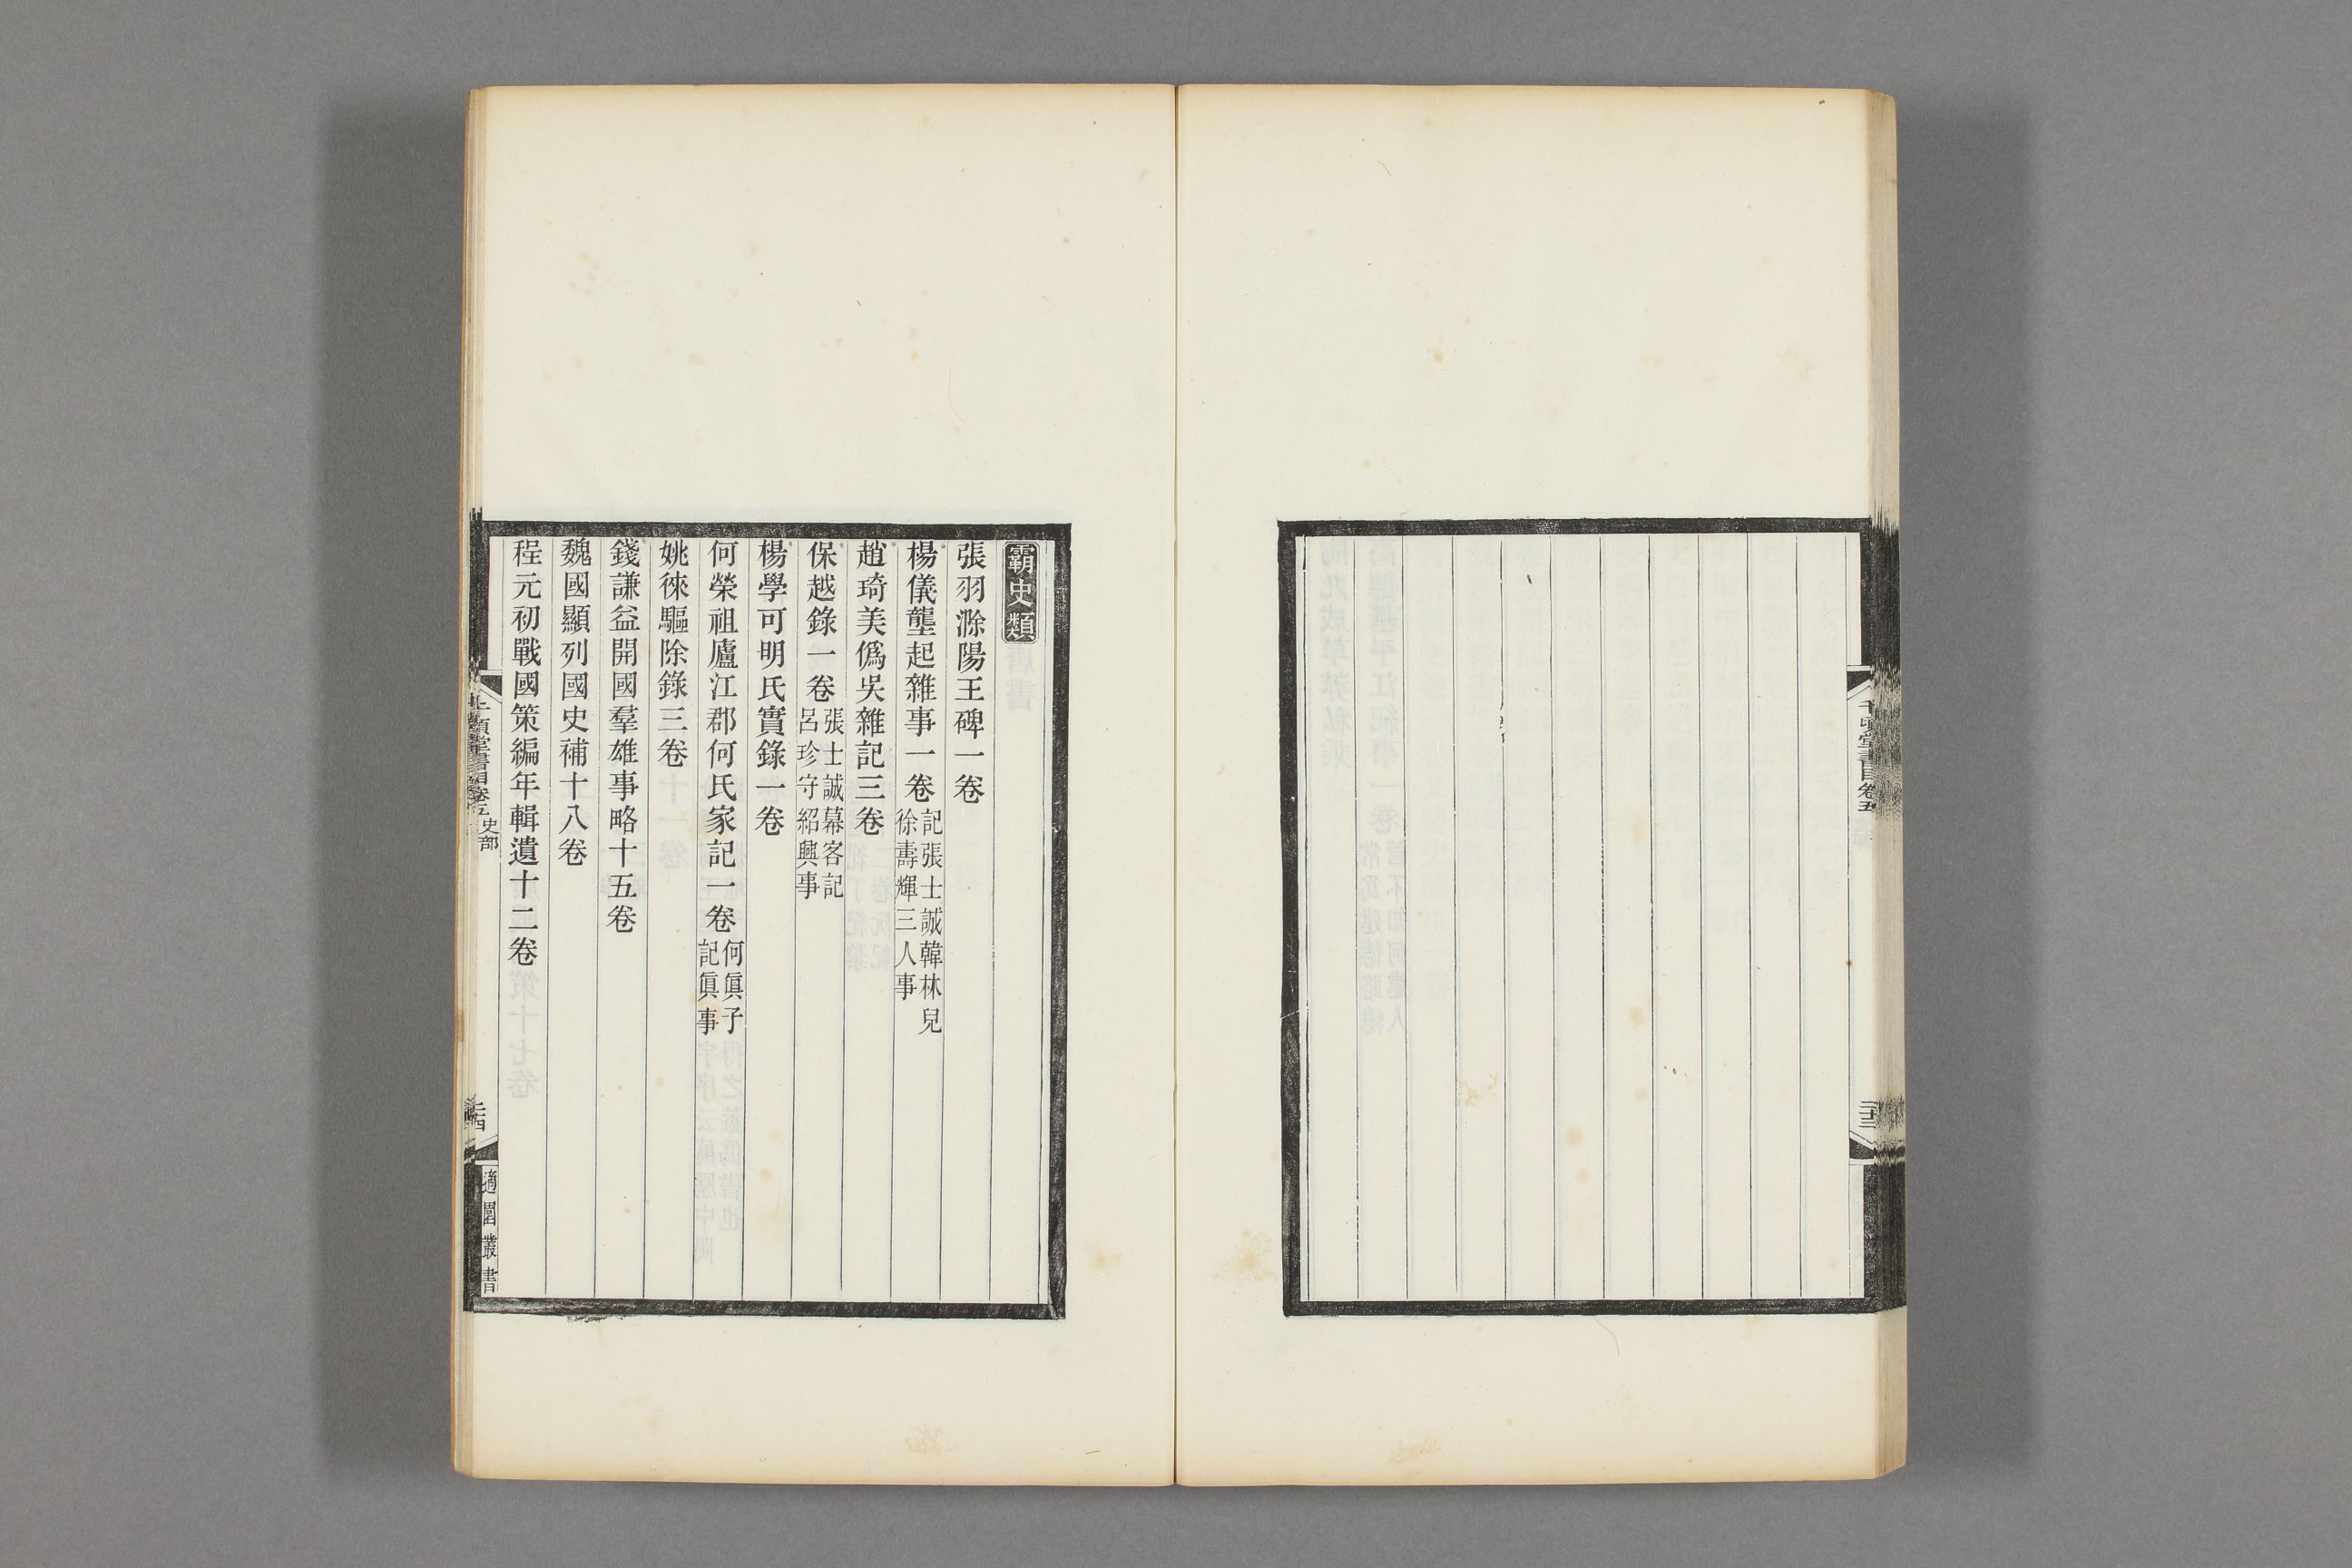 千頃堂書目卷五
二十三
霸史類
張羽滁陽王碑一卷
楊儀壟起雜事一卷記張士誠韓林兒
徐壽輝三人事
趙琦美僞吳雜記三卷
保越錄一卷張士誠幕客記
呂珍守紹興事
楊學可明氏實錄一卷
何榮祖廬江郡何氏家記一卷何眞子
記眞事
姚徠驅除錄三卷
錢謙益開國羣雄事略十五卷
魏國顯列國史補十八卷
程元初戰國策編年輯遺十二卷
千頃堂書目卷五史部
二十四
適園叢書